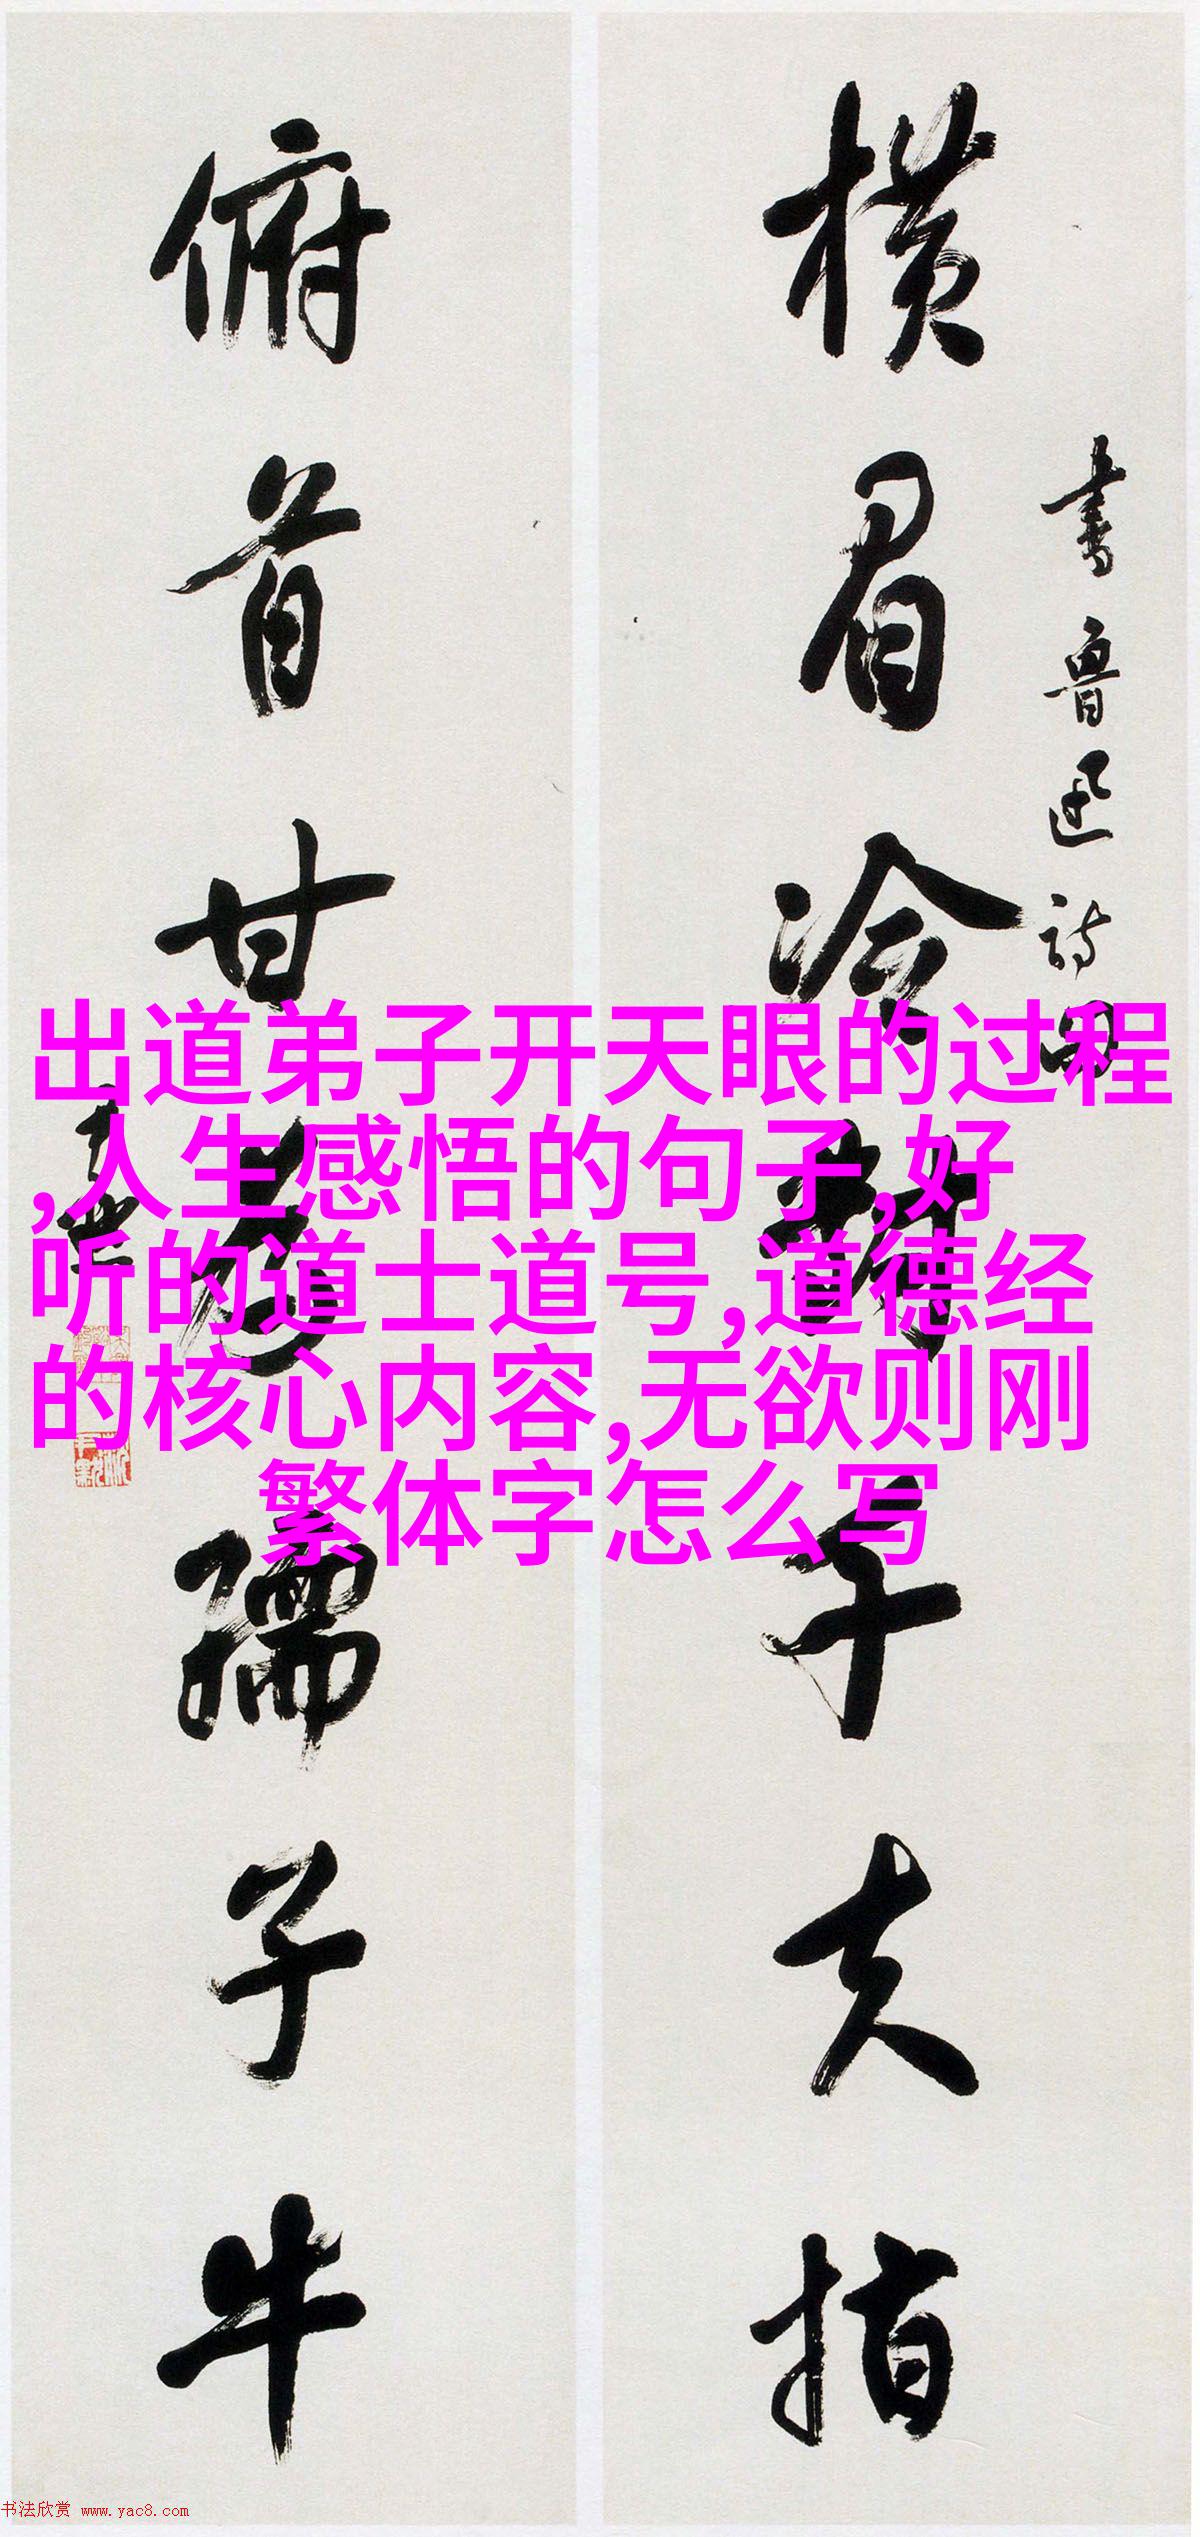 橫眉冷對千夫指
書魯迅詩
俯首甘為孺子牛
出道弟子开天眼的过程
,人生感悟的句子,好
听的道士道号,道德经
的核心内容,无欲则刚
繁体字怎么写
书法欣赏 www.yac8.com